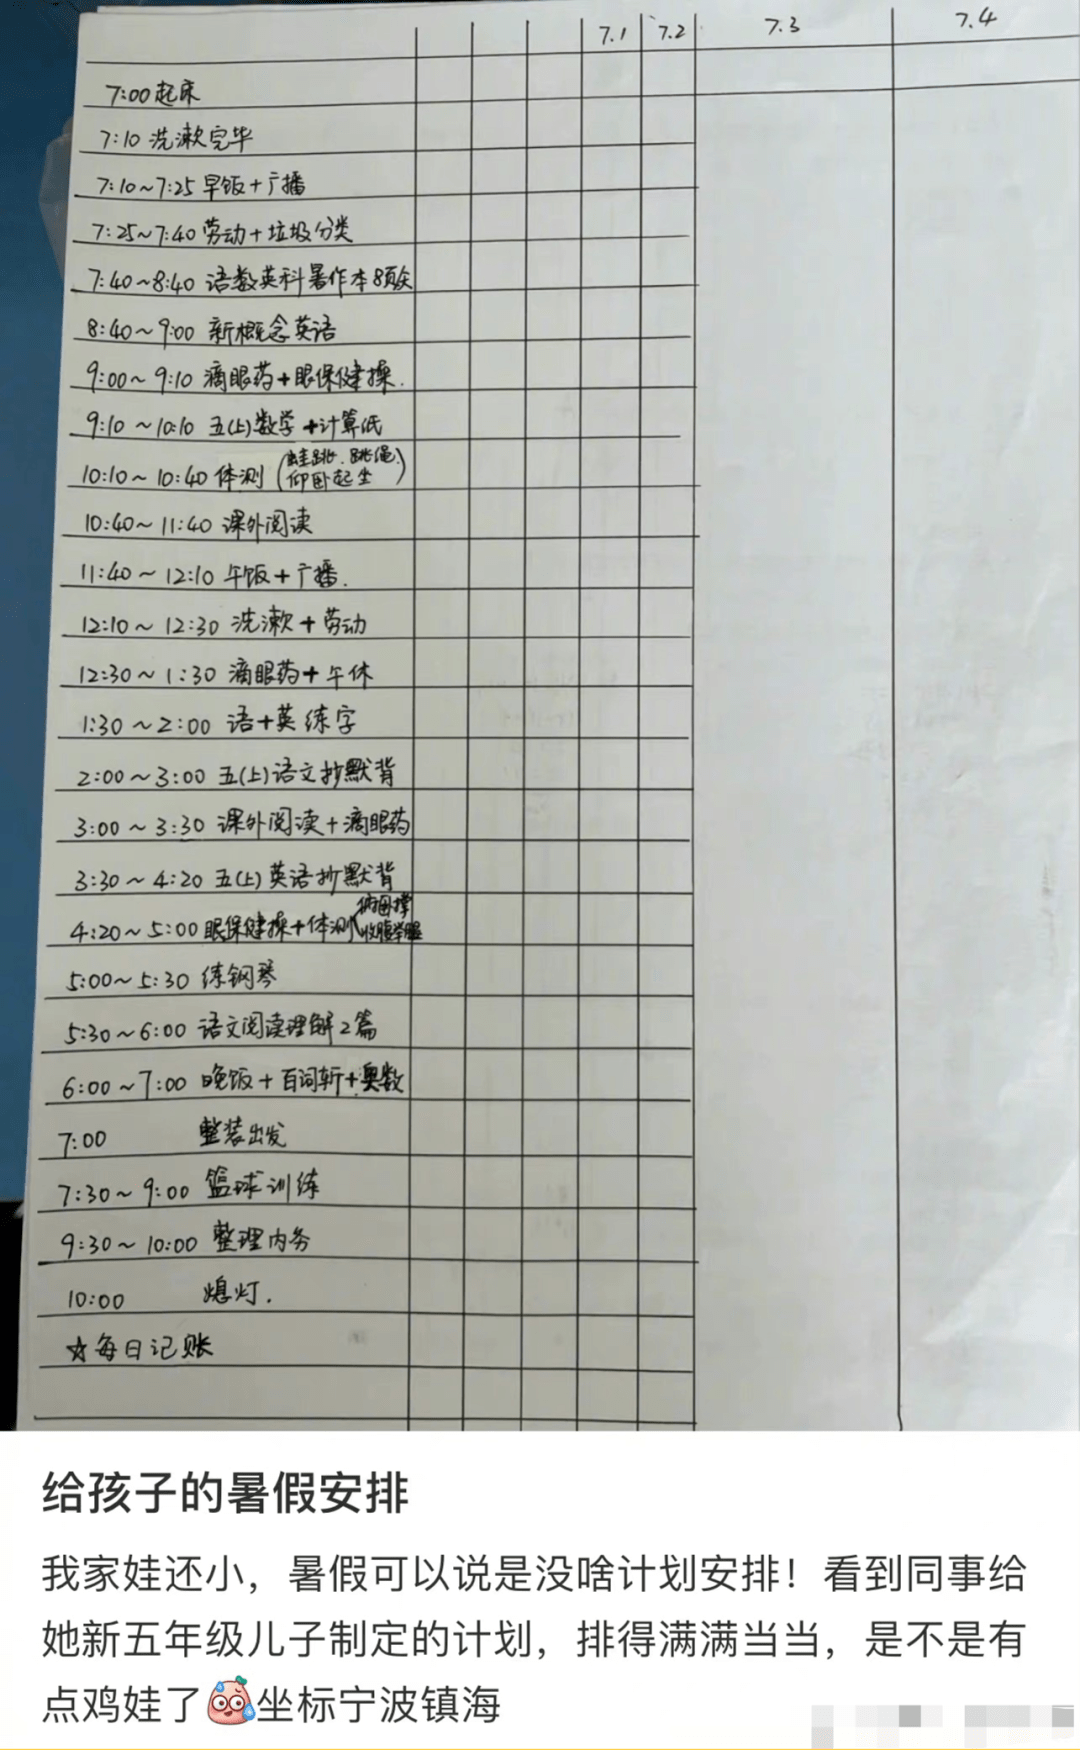 7.1 7.2 7.3 7.4
7:00 起床
7:10 洗漱完毕
7:10~7:25 早饭+广播
7:25~7:40 劳动+垃圾分类
7:40~8:40 语数英科暑作本8页
8:40~9:00 新概念英语
9:00~9:10 滴眼药+眼保健操.
9:10~10:10 五(上)数学+计算纸
10:10~10:40 体测(蛙跳.跳绳.
仰卧起坐)
10:40~11:40 课外阅读
11:40~12:10 午饭+广播.
12:10~12:30 洗漱+劳动
12:30~1:30 滴眼药+午休
1:30~2:00 语+英练字
2:00~3:00 五(上)语文抄默背
3:00~3:30 课外阅读+滴眼药
3:30~4:20 五(上)英语抄默背
4:20~5:00 眼保健操+体测
5:00~5:30 练钢琴
5:30~6:00 语文阅读理解2篇
6:00~7:00 晚饭+百词斩+奥数
7:00 整装出发
7:30~9:00 篮球训练
9:30~10:00 整理内务
10:00 熄灯.
☆每日记账
给孩子的暑假安排
我家娃还小，暑假可以说是没啥计划安排！看到同事给
她新五年级儿子制定的计划，排得满满当当，是不是有
点鸡娃了坐标宁波镇海